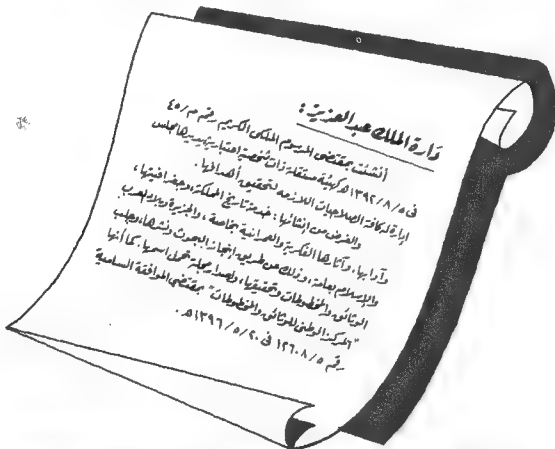 دارة الملك عبد العزيز :
أنشئت بمقتضى المرسوم الملكي الكريم رقم م/٤٥
في ١٣٩٢/٨/٥ هـ كهيئة مستقلة ذات شخصية اعتبارية يديرها مجلس
إدارة له كافة الصلاحيات اللازمة لتحقيق أهدافها .
والغرض من إنشائها : خدمة تاريخ المملكة وجغرافيتها ،
وآدابها ، وآثارها الفكرية والعمرانية بخاصة ، والجزيرة وبلاد العرب
والإسلام بعامة ، وذلك عن طريق إنجاز البحوث ونشرها ، وجلب
الوثائق والمخطوطات وتحقيقها ، وإصدار مجلة تحمل اسمها . كما أنها
"المركز الوطني للوثائق والمخطوطات" بمقتضى الموافقة السامية
رقم ١٢٦٠٨/٥ في ١٣٩٦/٥/٢٠ هـ .